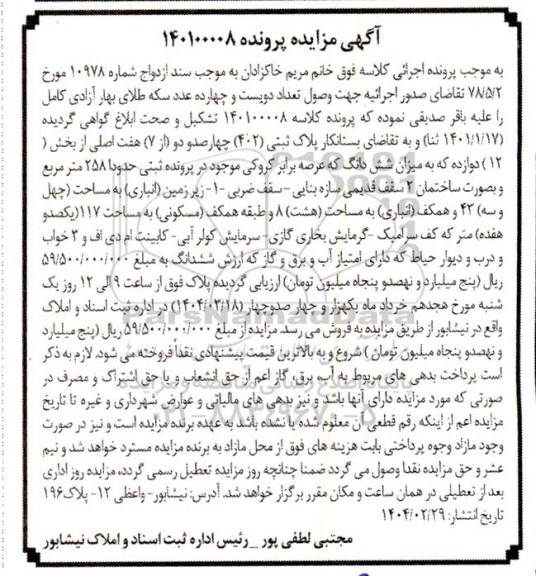 آگهی مزایده پرونده ۱۴۰۱۰۰۰۰۸
به موجب پرونده اجرائی کلاسه فوق خانم مریم خاکزادان به موجب سند ازدواج شماره ۱۰۹۷۸ مورخ
۷۸/۵/۲ تقاضای صدور اجرائیه جهت وصول تعداد دویست و چهارده عدد سکه طلای بهار آزادی کامل
را علیه باقر صدیقی نموده که پرونده کلاسه ۱۴۰۱۰۰۰۰۸ تشکیل و صحت ابلاغ گواهی گردیده
(۱۴۰۱/۱/۱۷ ثنا) و به تقاضای بستانکار پلاک ثبتی (۴۰۲) چهارصدو دو (از ۷) هفت اصلی از بخش (
۱۲ ) دوازده که به میزان شش دانگ که عرصه برابر کروکی موجود در پرونده ثبتی حدودا ۲۵۸ متر مربع
و بصورت ساختمان ۲ سقف قدیمی سازه بنایی -سقف ضربی -۱- زیرزمین (انباری) به مساحت (چهل
و سه) ۴۳ و همکف (انباری) به مساحت (هشت) ۸ و طبقه همکف (مسکونی) به مساحت ۱۱۷(یکصدو
هفده) متر که کف سرامیک -گرمایش بخاری گازی- سرمایش کولر آبی- کابینت ام دی اف و ۳ خواب
و درب و دیوار حیاط که دارای امتیاز آب و برق و گاز که ارزش ششدانگ به مبلغ ۵۹/۵۰۰/۰۰۰/۰۰۰
ریال (پنج میلیارد و نهصدو پنجاه میلیون تومان) ارزیابی گردیده پلاک فوق از ساعت ۹ الی ۱۲ روز یک
شنبه مورخ هجدهم خرداد ماه یکهزار و چهار صدوچهار (۱۴۰۴/۰۳/۱۸) در اداره ثبت اسناد و املاک
واقع در نیشابور از طریق مزایده به فروش می رسد. مزایده از مبلغ ۵۹/۵۰۰/۰۰۰/۰۰۰ ریال (پنج میلیارد
و نهصدو پنجاه میلیون تومان ) شروع و به بالاترین قیمت پیشنهادی نقدا فروخته می شود. لازم به ذکر
است پرداخت بدهی های مربوط به آب، برق، گاز اعم از حق انشعاب و یا حق اشتراک و مصرف در
صورتی که مورد مزایده دارای آنها باشد و نیز بدهی های مالیاتی و عوارض شهرداری و غیره تا تاریخ
مزایده اعم از اینکه رقم قطعی آن معلوم شده یا نشده باشد به عهده برنده مزایده است و نیز در صورت
وجود مازاد وجوه پرداختی بابت هزینه های فوق از محل مازاد به برنده مزایده مسترد خواهد شد و نیم
عشر و حق مزایده نقدا وصول می گردد ضمنا چنانچه روز مزایده تعطیل رسمی گردد، مزایده روز اداری
بعد از تعطیلی در همان ساعت و مکان مقرر برگزار خواهد شد. آدرس: نیشابور- واعظی ۱۲- پلاک۱۹۶
تاریخ انتشار: ۱۴۰۴/۰۲/۲۹
مجتبی لطفی پور _رئیس اداره ثبت اسناد و املاک نیشابور
ParsNamadData